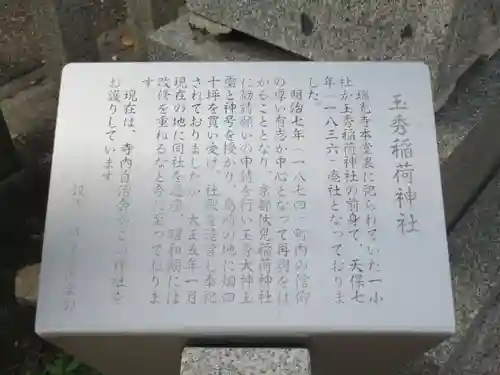 玉秀稲荷神社
瑞光寺本堂裏に祀られていた一小
社が玉秀稲荷神社の前身で、天保七
年(一八三六)廃社となっておりま
した
明治七年(一八七四)町内の信仰
の厚い有志が中心となって再興をは
かることとなり、京都伏見稲荷神社
に勧請願いの申請を行い玉秀大神主
霊と神号を授かり、島崎の地に畑四
十坪を買い受け、社殿を造営し奉祀
されておりましたが、大正五年一月
現在の地に同社を遷座、昭和期には
改修を重ねるなど今に至っておりま
す
現在は、寺内自治会がこの神社を
お護りしています